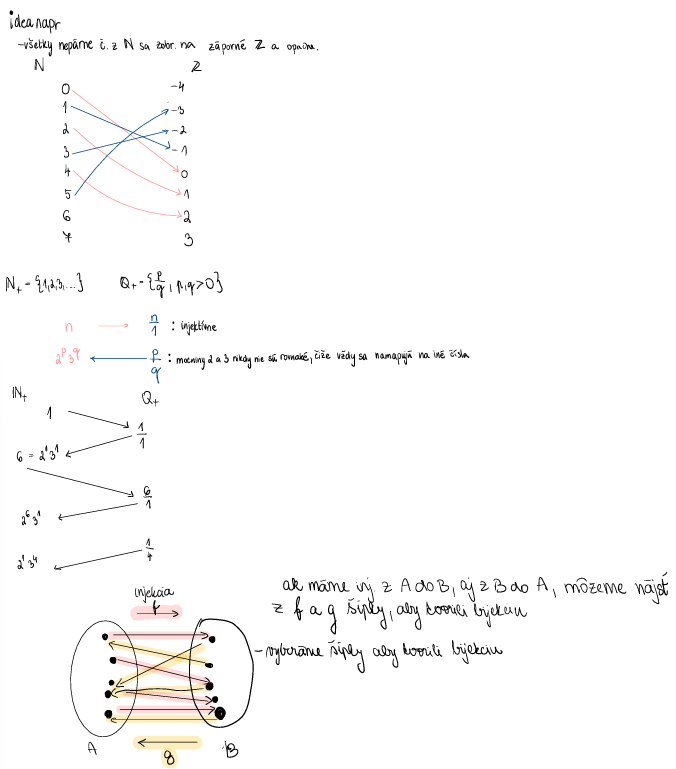 idea napr
-všetky nepárne č. z N sa zobr. na záporné Z a opačne.
N Z
0 -4
1 -3
2 -2
3 -1
4 0
5 1
6 2
7 3
N₊ = {1,2,3,...} Q₊ = {p/q, p,q>0}
n n/1 : injektívne
2^p 3^q p/q : mocniny 2 a 3 nikdy nie sú rovnaké, čiže vždy sa namapujú na iné čísla
N₊ Q₊
1
1/1
6 = 2¹3¹
6/1
2⁶3¹
1/4
2¹3⁴
ak máme inj. z A do B, aj z B do A, môžeme nájsť
z f a g šípky, aby tvorili bijekciu
injekcia
f
-vyberáme šípky aby tvorili bijekciu
A B
g